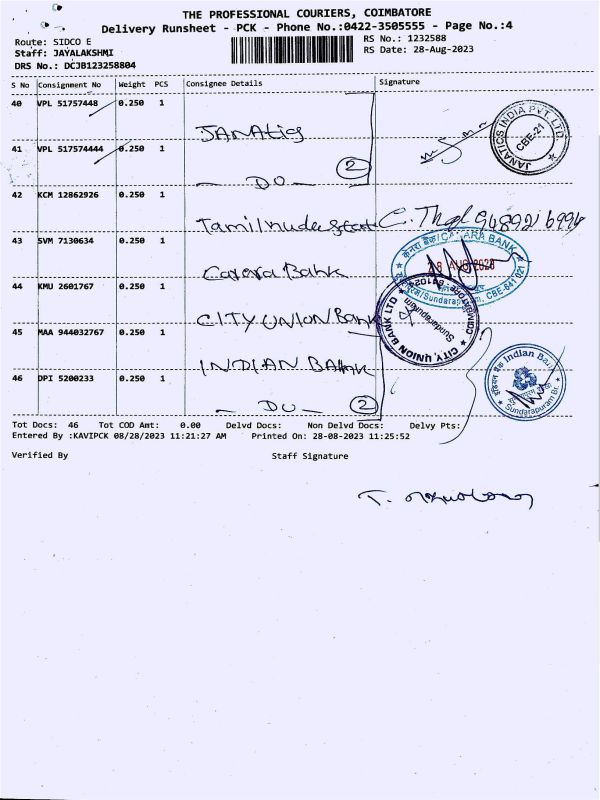 THE PROFESSIONAL COURIERS, COIMBATORE
Delivery Runsheet - PCK - Phone No.:0422-3505555 - Page No.:4
Route: SIDCO E
RS No.: 1232588
Staff: JAYALAKSHMI
RS Date: 28-Aug-2023
DRS No.: DCJB123258804
S No Consignment No Weight PCS Consignee Details Signature
40 VPL 51757448 0.250 1 JANATIS
JANATICS INDIA PVT. LTD CBE-21
41 VPL 517574444 0.250 1 - DO - 2
42 KCM 12862926 0.250 1 Tamilnudu C. 
43 SVM 7130634 0.250 1 Canara Bank
केनरा बैंक/CANARA BANK
28 AUG 2023
Sundarapuram, CBE-641021
44 KMU 2601767 0.250 1 CITY UNION Bank
CITY UNION BANK LTD Sundarapuram COIMBATORE
45 MAA 944032767 0.250 1 INDIAN BANK
इंडियन बैंक Indian Bank
Sundarapuram Br.
46 DPI 5200233 0.250 1 - DO - 2
Tot Docs: 46 Tot COD Amt: 0.00 Delvd Docs: Non Delvd Docs: Delvy Pts:
Entered By :KAVIPCK 08/28/2023 11:21:27 AM Printed On: 28-08-2023 11:25:52
Verified By Staff Signature